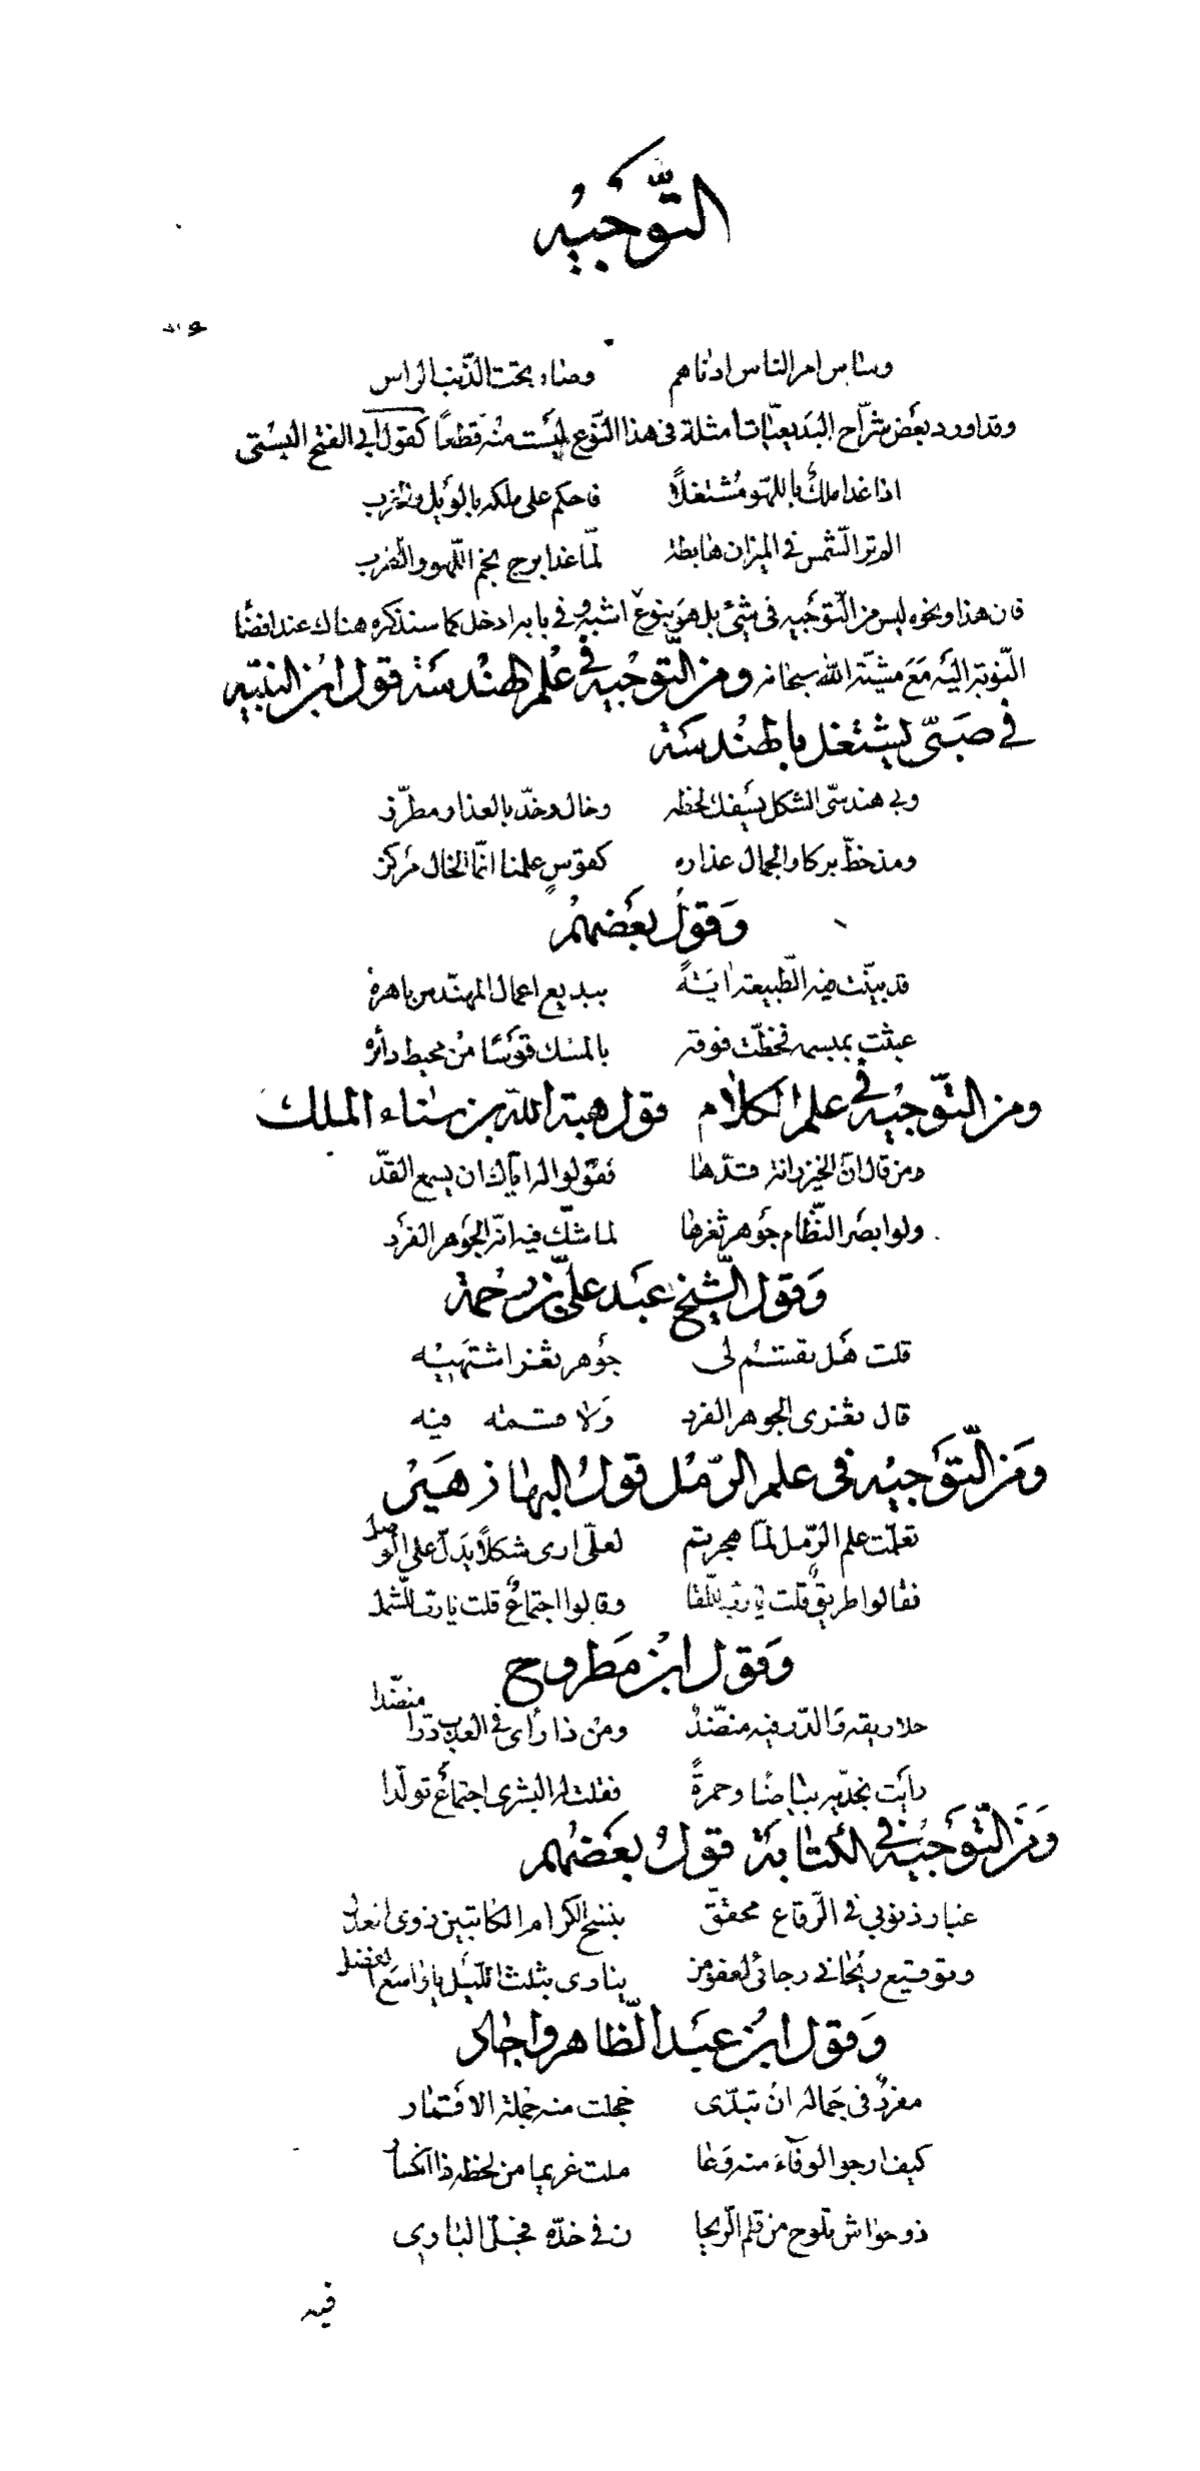 التوجيه
وساس امر الناس ادناهم وصار تحت الذنب الراس
وقد اورد بعض شراح البديعيات امثلة فى هذا النوع ليست منه قطعًا كقول ابي الفتح البستى
اذا غدا ملك باللهو مشتغلاً فاحكم على ملكه بالويل والحرب
الم تر الشمس في الميزان هابطة لما غدا برج نجم اللهو والطرب
فان هذا ونحوه ليس من التوجيه فى شئ بل هو بنوع اشبه وفي بابه ادخل كما سنذكره هناك عند افضا
النوبة اليه مع مشيّة الله سبحانه ومن التوجيه في علم الهندسة قول ابن النبيه
في صبىّ يشتغل بالهندسة
وبي هندسى الشكل يسبيك لحظه وخال وخدّ بالعذار مطرّز
ومذ خطّ بركار الجمال عذاره كقوسٍ علمنا انّما الخال مركز
وقول بعضهم
قد بيّنت فيه الطّبيعة ايةً ببديع اعمال المهندس باهرة
عبثت بمبسمه فخطّت فوقه بالمسك قوسًا من محيط دائرة
ومن التّوجيه في علم الكلام قول هبة الله بن سناء الملك
ومن قال انّ الخيزرانة قدّها فقولوا له ايّاك ان يسمع القدّ
ولو ابصر النّظام جوهر ثغرها لما شكّ فيه انّه الجوهر الفرد
وقول الشّيخ عبد علىّ بن رحمة
قلت هل يقسم لى جوهر ثغر اشتهيه
قال ثغرى الجوهر الفرد ولا قسمة فيه
ومن التّوجيه فى علم الرّمل قول البها زهير
تعلّمت علم الرّمل لمّا هجرتم لعلّى ارى شكلاً يدلّ على الوصل
فقالوا طريقٌ قلت يا ربّ للّقا وقالوا اجتماعٌ قلت يا ربّ للشّمل
وقول ابن مطروح
حلا ريقه والدّر فيه منضّد ومن ذا راى في العذب درّا منضّدا
رأيت بخدّيه بياضًا وحمرةً فقلت له البشرى اجتماع تولّدا
ومن التّوجيه في الكتابة قول بعضهم
غبار ذنوبي في الرّقاع محقّق بنسخ الكرام الكاتبين ذوى العدل
وتوقيع ريحانى رجائى لعفو من ينادى بثلث الليل يا واسع الفضل
وقول ابن عبد الظّاهر واجاد
مفردٌ فى جماله ان تبدّى خجلت منه جملة الاقمار
كيف ارجو الوفاء منه وعا ملت غريما من لحظه ذا انكسار
ذو حواش تلوح من قلم الرّيحا ن في خدّه فجلّ البارى
فيه